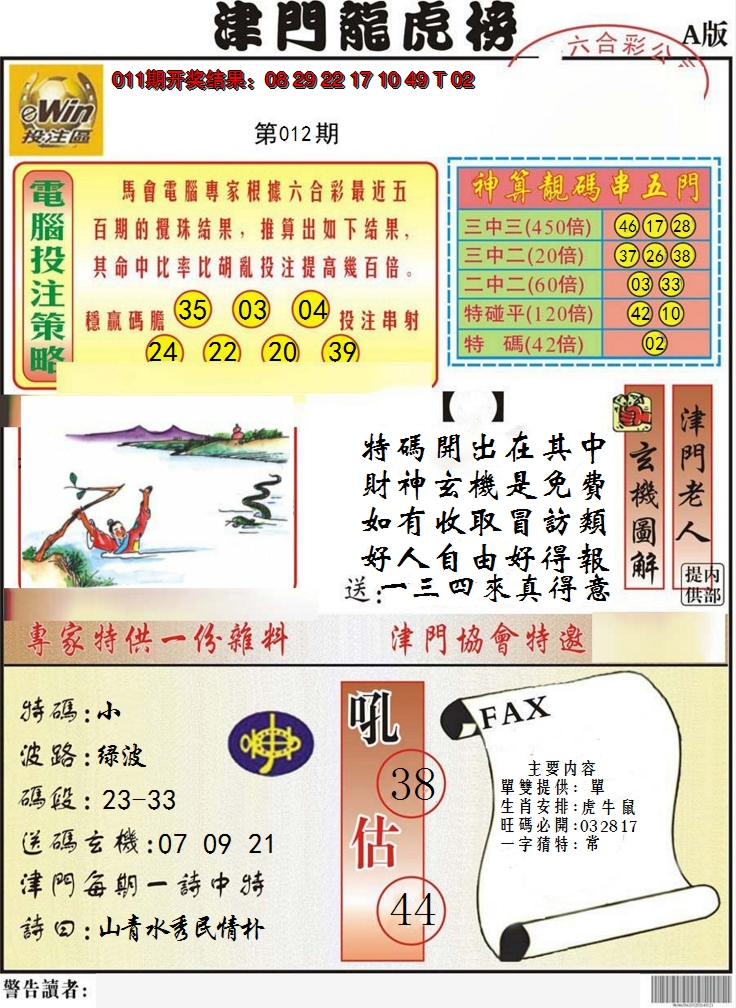 津門龍虎榜
A版
六合彩公
011期开奖结果：08 29 22 17 10 49 T 02
eWin
投注區
第012期
電腦投注策略
馬會電腦專家根據六合彩最近五
百期的攪珠结果，推算出如下结果，
其命中比率比胡亂投注提高幾百倍。
穩贏碼膽 35 03 04 投注串射
24 22 20 39
神算靚碼串五門
三中三(450倍) 46 17 28
三中二(20倍) 37 26 38
二中二(60倍) 03 33
特碰平(120倍) 42 10
特 碼(42倍) 02
【 】
特碼開出在其中
財神玄機是免費
如有收取冒訪類
好人自由好得報
送：一三四來真得意
玄機圖解
津門老人
内部提供
專家特供一份雜料
津門協會特邀
特碼：小
波路：绿波
碼段：23-33
送碼玄機：07 09 21
津門每期一詩中特
詩曰：山青水秀民情朴
吼
38
估
44
FAX
主要内容
單雙提供：單
生肖安排：虎牛鼠
旺碼必開：032817
一字猜特：常
警告讀者：